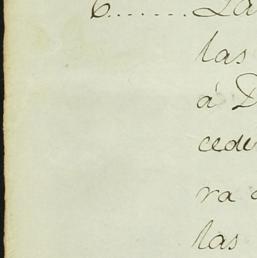 6........La
las
á D
cede
ra
las